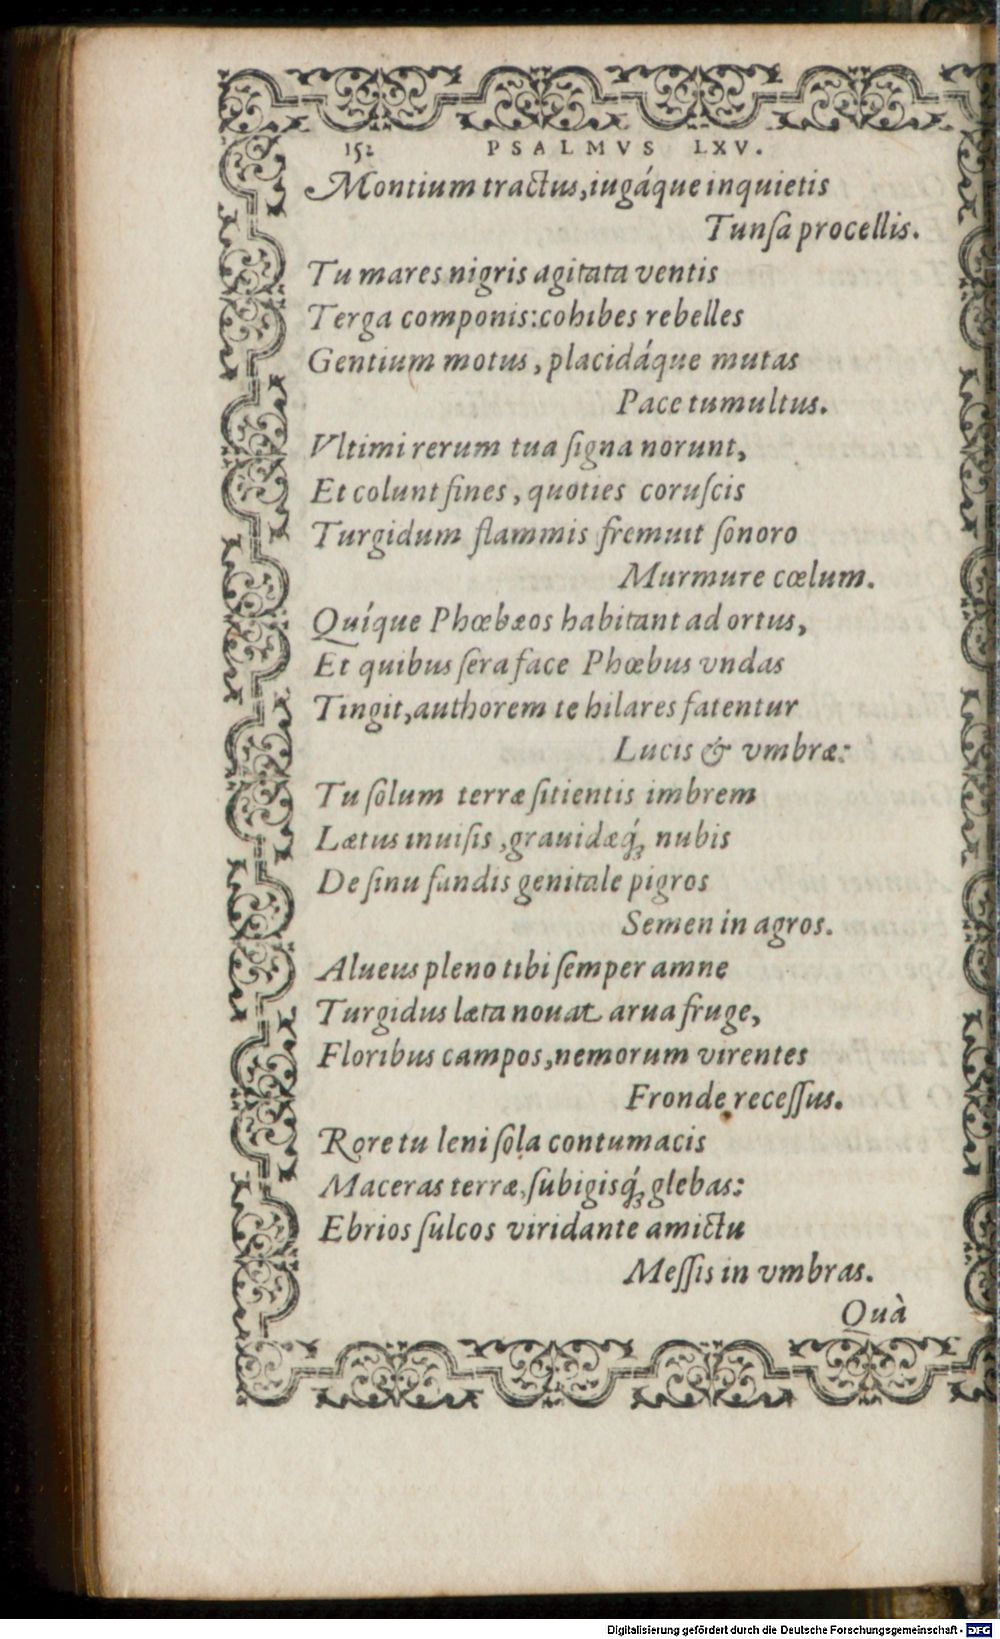 152 PSALMVS LXV.
Montium tractus, iugáque inquietis
Tunſa procellis.
Tu mares nigris agitata ventis
Terga componis: cohibes rebelles
Gentium motus, placidáque mutas
Pace tumultus.
Vltimi rerum tua ſigna norunt,
Et colunt fines, quoties coruſcis
Turgidum flammis fremuit ſonoro
Murmure cœlum.
Quíque Phœbæos habitant ad ortus,
Et quibus ſera face Phœbus vndas
Tingit, authorem te hilares fatentur
Lucis & vmbræ:
Tu ſolum terræ ſitientis imbrem
Lætus inuiſis, grauidæq́ꝫ nubis
De ſinu fundis genitale pigros
Semen in agros.
Alueus pleno tibi ſemper amne
Turgidus læta nouat arua fruge,
Floribus campos, nemorum virentes
Fronde receſſus.
Rore tu leni ſola contumacis
Maceras terræ, ſubigisq́ꝫ glebas:
Ebrios ſulcos viridante amictu
Meſſis in vmbras.
Quà
Digitalisierung gefördert durch die Deutsche Forschungsgemeinschaft - DFG